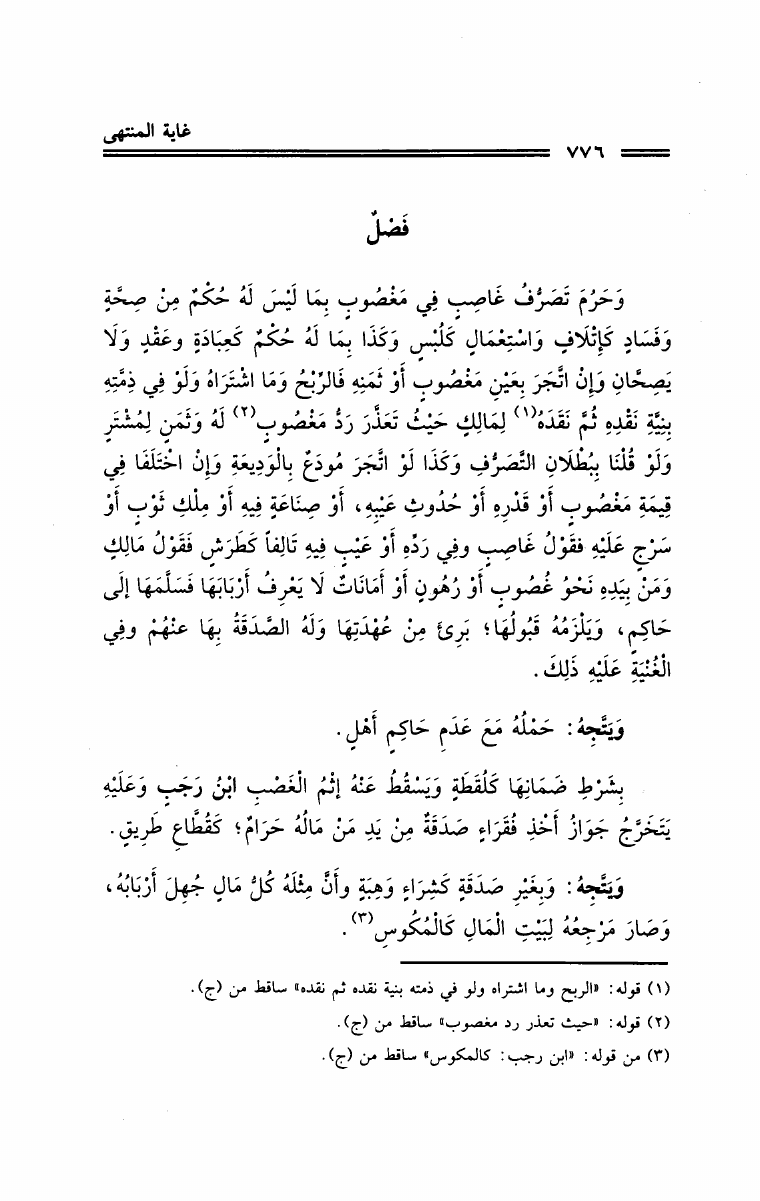 غاية المنتهى
٧٧٦
فَصْلٌ
وَحَرُمَ تَصَرُّفُ غَاصِبٍ فِي مَغْصُوبٍ بِمَا لَيْسَ لَهُ حُكْمٌ مِنْ صِحَّةٍ
وَفَسَادٍ كَإِتْلَافٍ وَاسْتِعْمَالٍ كَلُبْسٍ وَكَذَا بِمَا لَهُ حُكْمٌ كَعِبَادَةٍ وعَقْدٍ وَلَا
يَصِحَّانِ وَإِنْ اتَّجَرَ بِعَيْنِ مَغْصُوبٍ أَوْ ثَمَنِهِ فَالرِّبْحُ وَمَا اشْتَرَاهُ وَلَوْ فِي ذِمَّتِهِ
بِنِيَّةِ نَقْدِهِ ثُمَّ نَقَدَهُ(١) لِمَالِكٍ حَيْثُ تَعَذَّرَ رَدُّ مَغْصُوبٍ(٢) لَهُ وَثَمَنٍ لِمُشْتَرٍ
وَلَوْ قُلْنَا بِبُطْلَانِ التَّصَرُّفِ وَكَذَا لَوْ اتَّجَرَ مُودَعٌ بِالْوَدِيعَةِ وَإِنْ اخْتَلَفَا فِي
قِيمَةِ مَغْصُوبٍ أَوْ قَدْرِهِ أَوْ حُدُوثِ عَيْبِهِ، أَوْ صِنَاعَةٍ فِيهِ أَوْ مِلْكِ ثَوْبٍ أَوْ
سَرْجٍ عَلَيْهِ فَقَوْلُ غَاصِبٍ وفِي رَدِّهِ أَوْ عَيْبٍ فِيهِ تَالِفاً كَطَرَشٍ فَقَوْلُ مَالِكٍ
وَمَنْ بِيَدِهِ نَحْوُ غُصُوبٍ أَوْ رُهُونٍ أَوْ أَمَانَاتٌ لَا يَعْرِفُ أَرْبَابَهَا فَسَلَّمَهَا إلَى
حَاكِمٍ، وَيَلْزَمُهُ قَبُولُهَا؛ بَرِئَ مِنْ عُهْدَتِهَا وَلَهُ الصَّدَقَةُ بِهَا عنْهُمْ وفِي
الْغُنْيَةِ عَلَيْهِ ذَلِكَ.
وَيَتَّجِهُ: حَمْلُهُ مَعَ عَدَمِ حَاكِمٍ أَهْلٍ.
بِشَرْطِ ضَمَانِهَا كَلُقَطَةٍ وَيَسْقُطُ عَنْهُ إثْمُ الْغَصْبِ ابْنُ رَجَبٍ وَعَلَيْهِ
يَتَخَرَّجُ جَوَازُ أَخْذِ فُقَرَاءٍ صَدَقَةٌ مِنْ يَدِ مَنْ مَالُهُ حَرَامٌ؛ كَقُطَّاعِ طَرِيقٍ.
وَيَتَّجِهُ: وَبِغَيْرِ صَدَقَةٍ كَشِرَاءٍ وَهِبَةٍ وأَنَّ مِثْلَهُ كُلُّ مَالٍ جُهِلَ أَرْبَابُهُ،
وَصَارَ مَرْجِعُهُ لِبَيْتِ الْمَالِ كَالْمُكُوسِ(٣).
(١) قوله: «الربح وما اشتراه ولو في ذمته بنية نقده ثم نقده» ساقط من (ج).
(٢) قوله: «حيث تعذر رد مغصوب» ساقط من (ج).
(٣) من قوله: «ابن رجب: كالمكوس» ساقط من (ج).